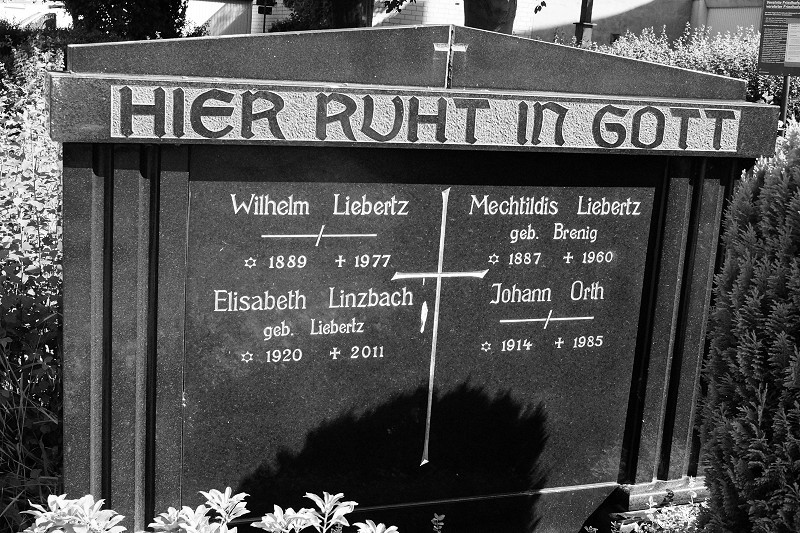 HIER RUHT IN GOTT
Wilhelm Liebertz
✡ 1889 ✝ 1977
Mechtildis Liebertz
geb. Brenig
✡ 1887 ✝ 1960
Elisabeth Linzbach
geb. Liebertz
✡ 1920 ✝ 2011
Johann Orth
✡ 1914 ✝ 1985